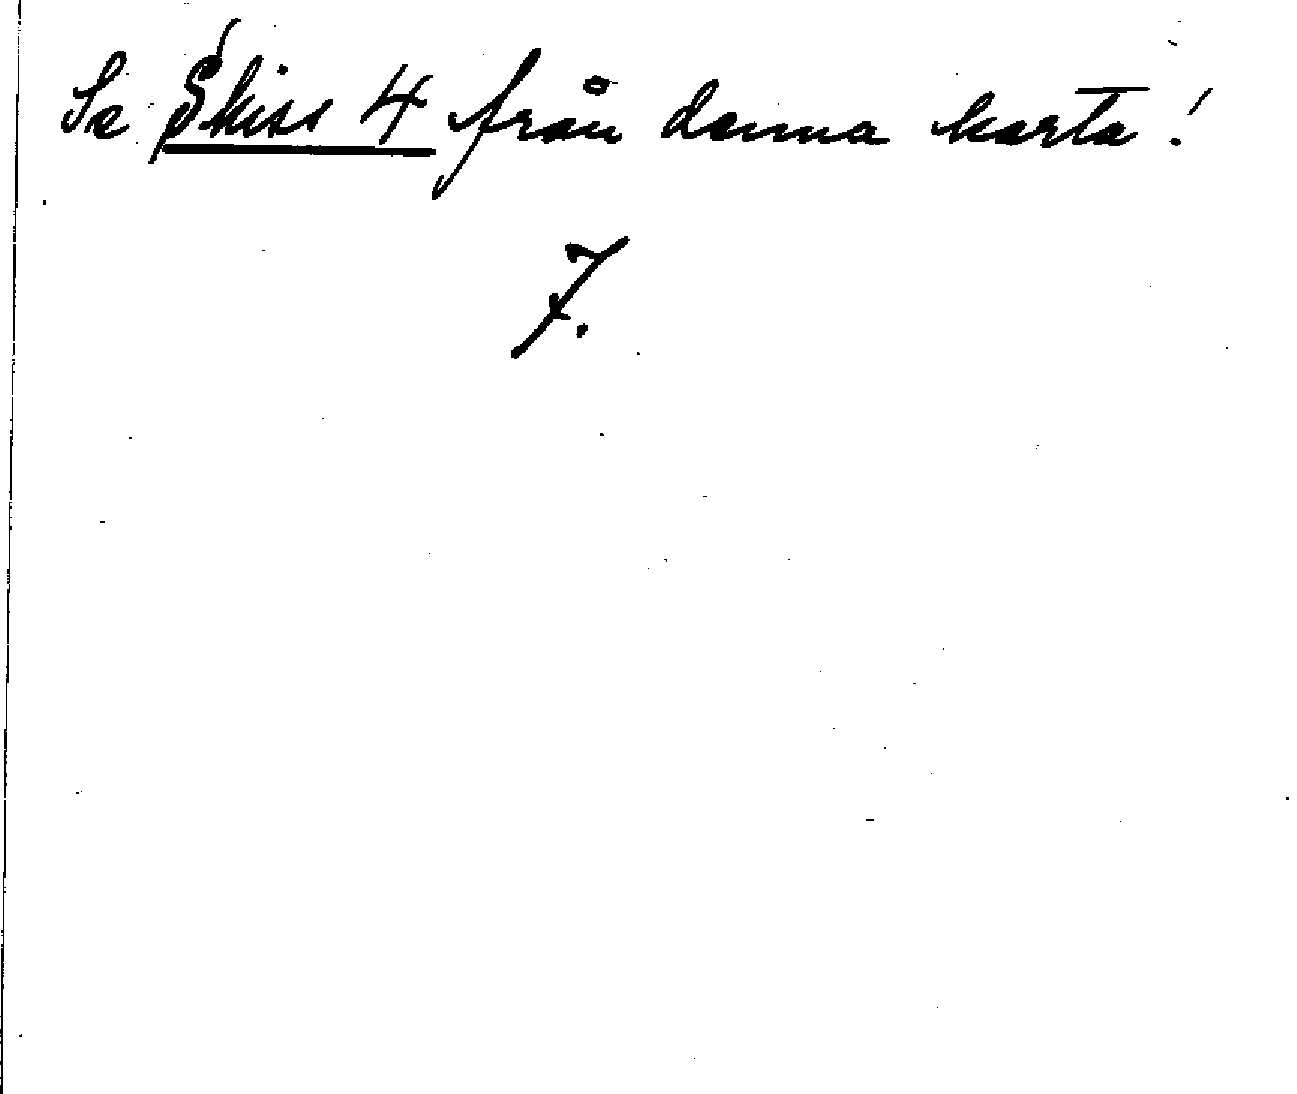 Se Skiss 4 från denna karta!
7.